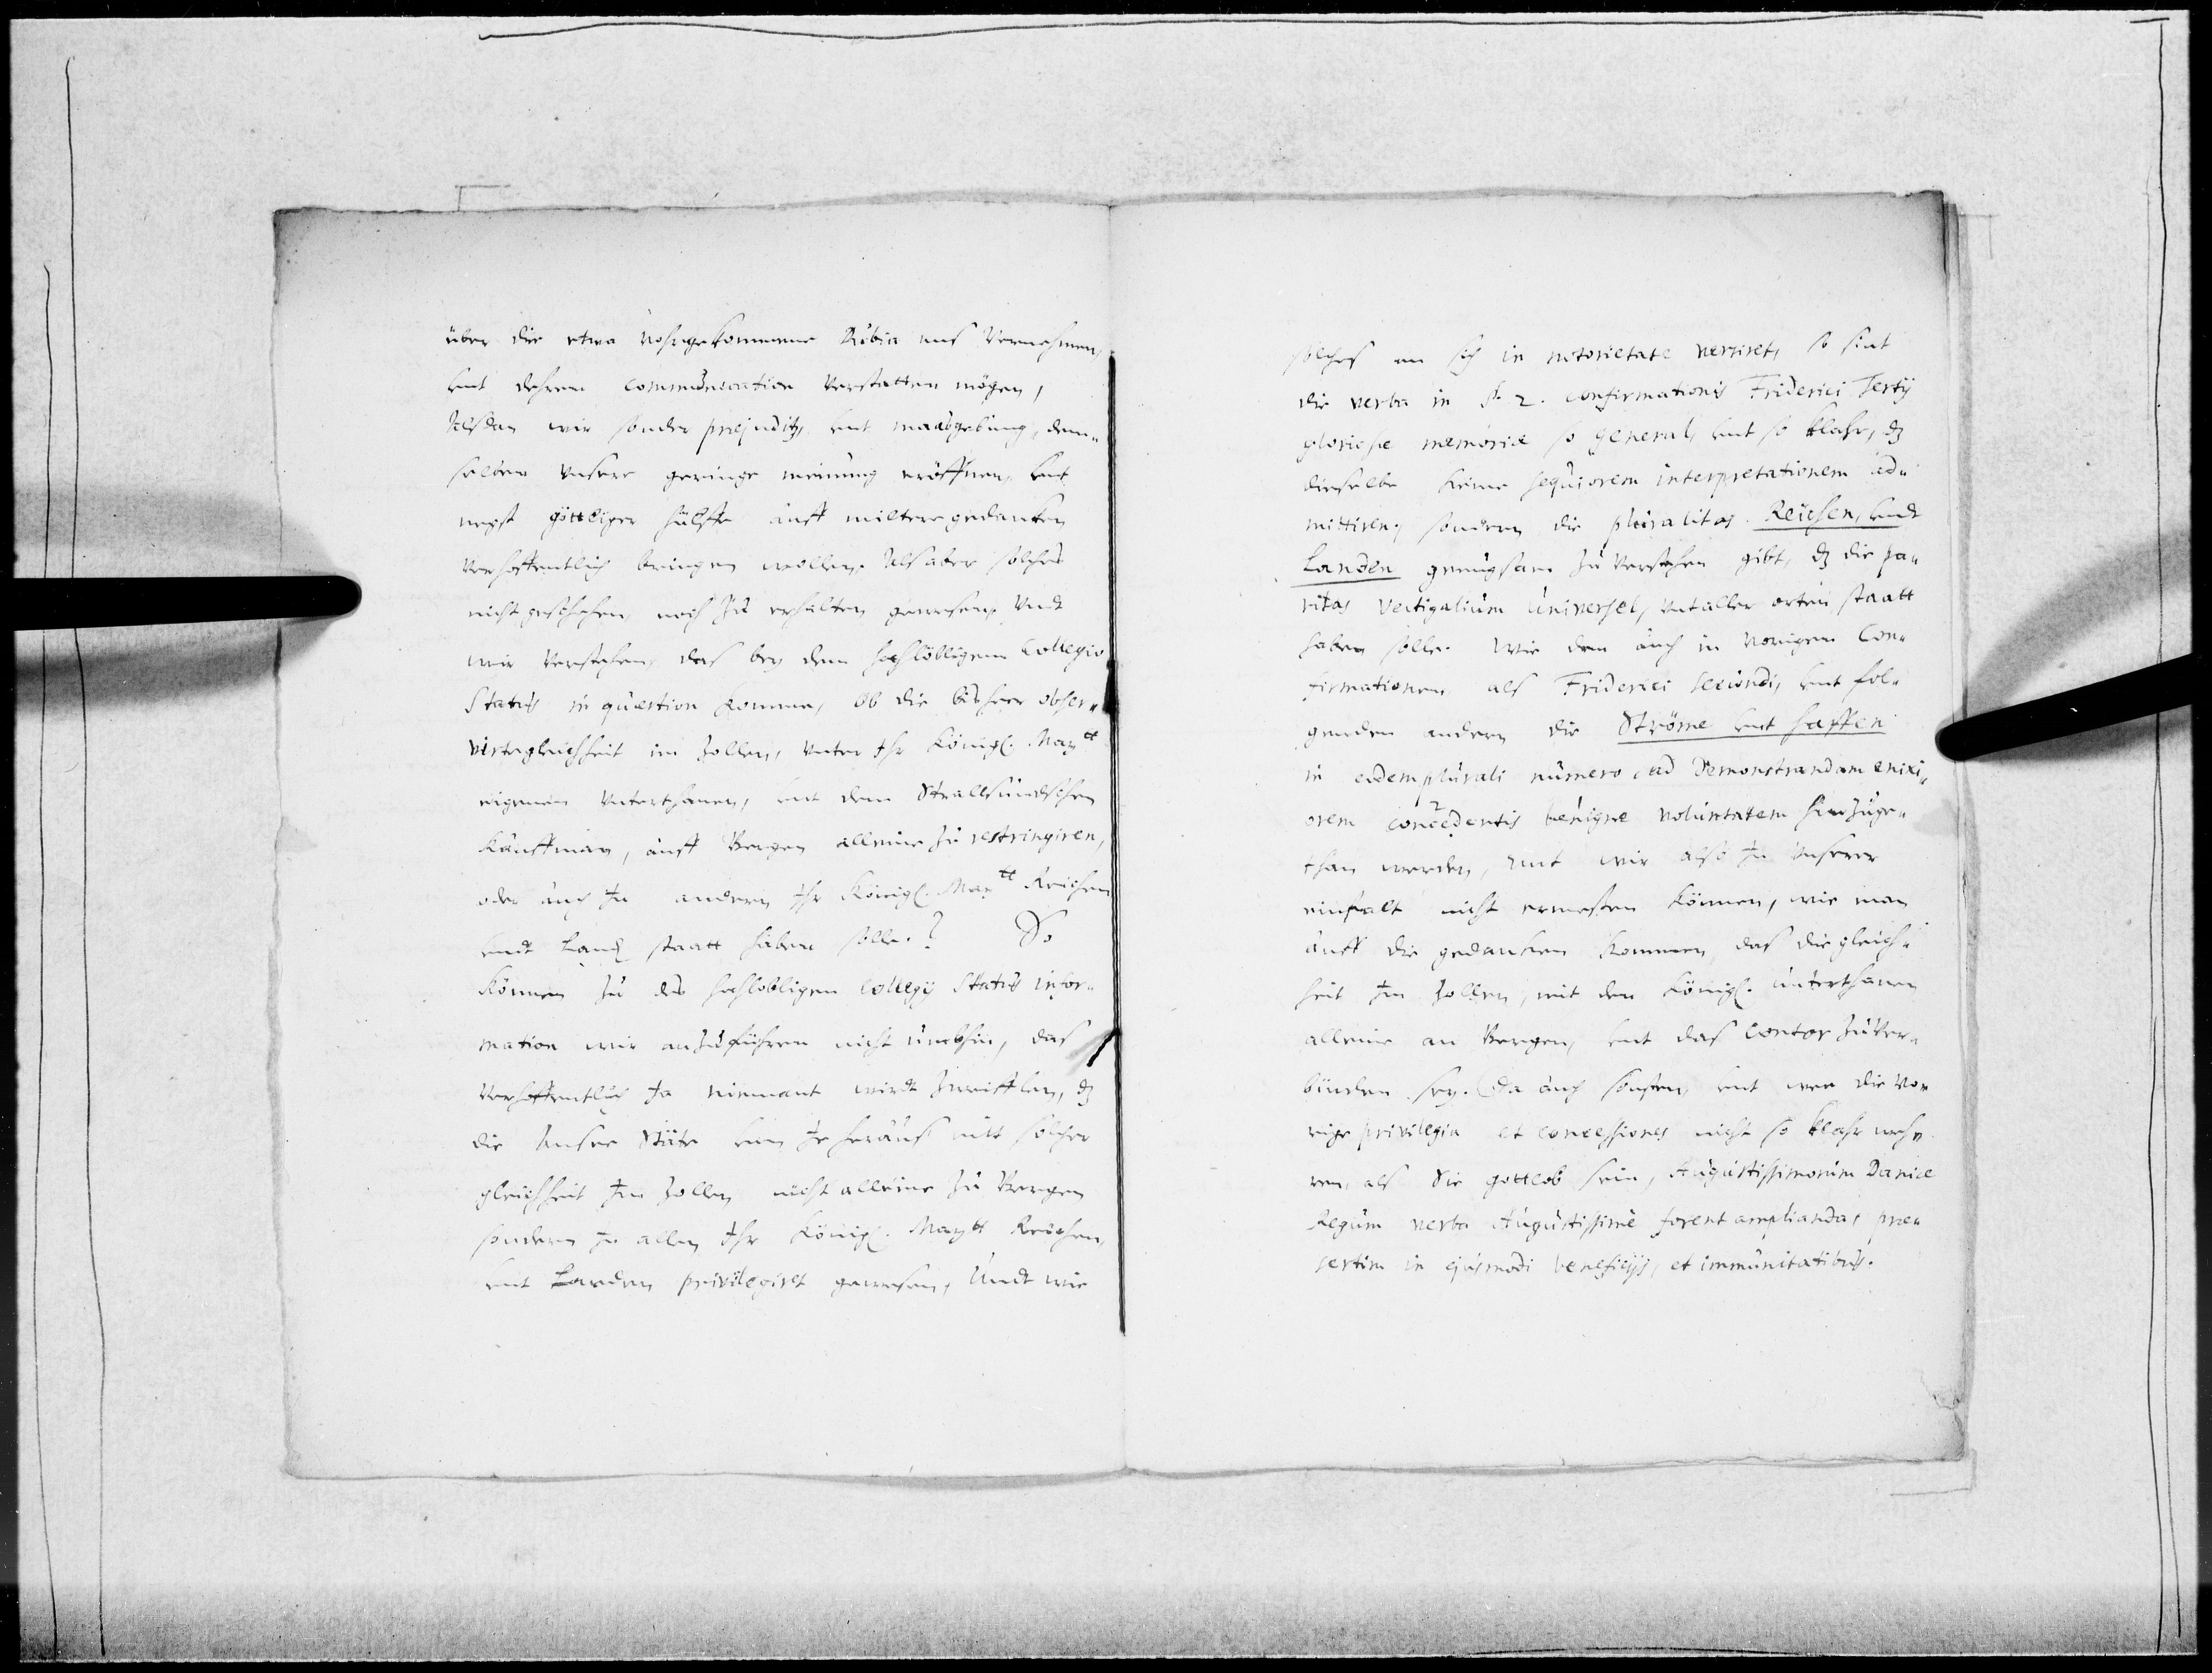 über die etwa vohrgekommene dubia uns vernehmen,
unt dehren communication verstatten mögen,
Alsdan wir sonder præjuditz, unt maasgebung, dem„
selben unsere geringe meinung eröffnen, unt
negst göttliger hülffe auff miltere gedanken
verhoffentlich bringen wollen. Als aber solches
nicht geschehen, noch zu erhalten gewesen, Undt
wir verstehen, das bey dem hochlöbligem Collegio
Status in quæstion komme, Ob die bisheer obser„
virte gleichheit im Zollen, unter Ihr Königl. Maytt
eigenen unterthanen, unt dem Strallsundschen
Kauffman, auff Bergen alleine zu restringiren,
oder auch In andern Ihr Königl. Maytt Reichen
undt Land staatt haben solle.? So
können zu des hochlobligen Collegij Status infor„
mation wir anzuführen nicht umbhin, das
verhoffentlich Ja niemant wirdt zweifflen, dz
die Ansee Stäte von Je heraus mitt solcher
gleichheit Im Zollen nicht alleine zu Bergen
sondern In allen Ihr Königl. Maytt Reichen,
unt Landen privilegiret gewesen, Undt wie
solches an sich in notorietate versiret, so sint
die verba in §. 2. confirmationis Friderici Tertij
gloriosæ memoriæ so general, unt so klahr, dz
dieselbe keine sequiorem interpretationem ad„
mittiren, sondern die pluralitas Reichen, undt
Landen genugsam zu verstehen gibt, dz die pa„
ritas vectigalium universel, unt aller orten staatt
haben solle. Wie den auch in vorigen Con„
firmationen als Friderici Secundi, unt fol„
genden andern die Ströme unt haffen
in eodem plurali numero, ad demonstrandam enixi„
orem concedentis benigne voluntatem hinzuge„
than werden, unt wir also In unserer
einfalt nicht ermessen können, wie man
auff die gedanken kommen, das die gleich„
heit Im Zollen, mit den Königl. unterthanen
alleine an Bergen, unt das Contor zu ver„
binden sey. Da auch sonsten, unt wen die vo„
rige privilegia et concessiones nicht so klahr weh„
ren, als Sie gottlob sein, Augustissimorum Daniæ
Regum verba Augustissimè forent amplianda, præ„
sertim in ejusmodi beneficijs, et immunitatibus.